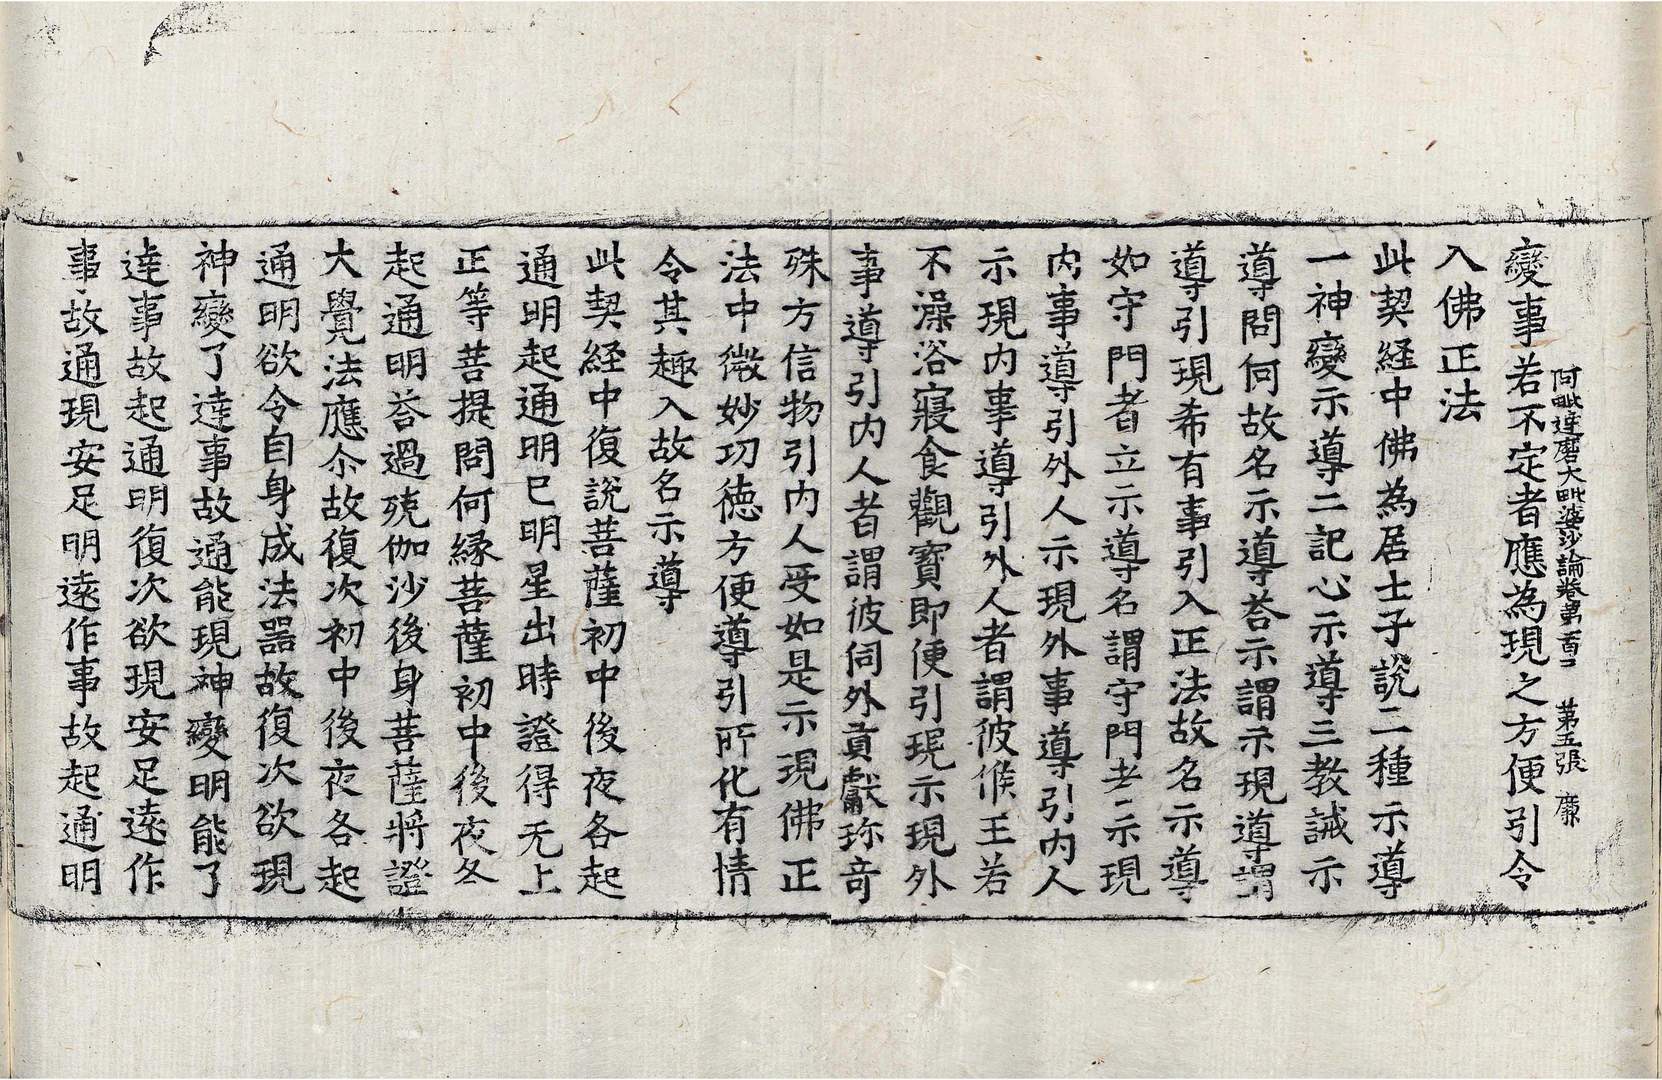 阿毗達磨大毗婆沙論卷第一百二　第五張　廉
變事若不定者應為現之方便引令
入佛正法
此契経中佛為居士子說二種示導
一神變示導二記心示導三教誡示
導問何故名示導荅示謂示現導謂
導引現希有事引入正法故名示導
如守門者立示導名謂守門者示現
内事導引外人示現外事導引内人
示現内事導引外人者謂彼候王若
不澡浴寢食觀寳即便引現示現外
事導引内人者謂彼伺外貢獻珎奇
殊方信物引内人受如是示現佛正
法中微妙功徳方便導引所化有情
令其趣入故名示導
此契経中復說菩薩初中後夜各起
通明起通明已明星出時證得无上
正等菩提問何縁菩薩初中後夜各
起通明荅過殑伽沙後身菩薩將證
大覺法應尒故復次初中後夜各起
通明欲令自身成法噐故復次欲現
神變了逹事故通能現神變明能了
逹事故起通明復次欲現安足遠作
事故通現安足明遠作事故起通明